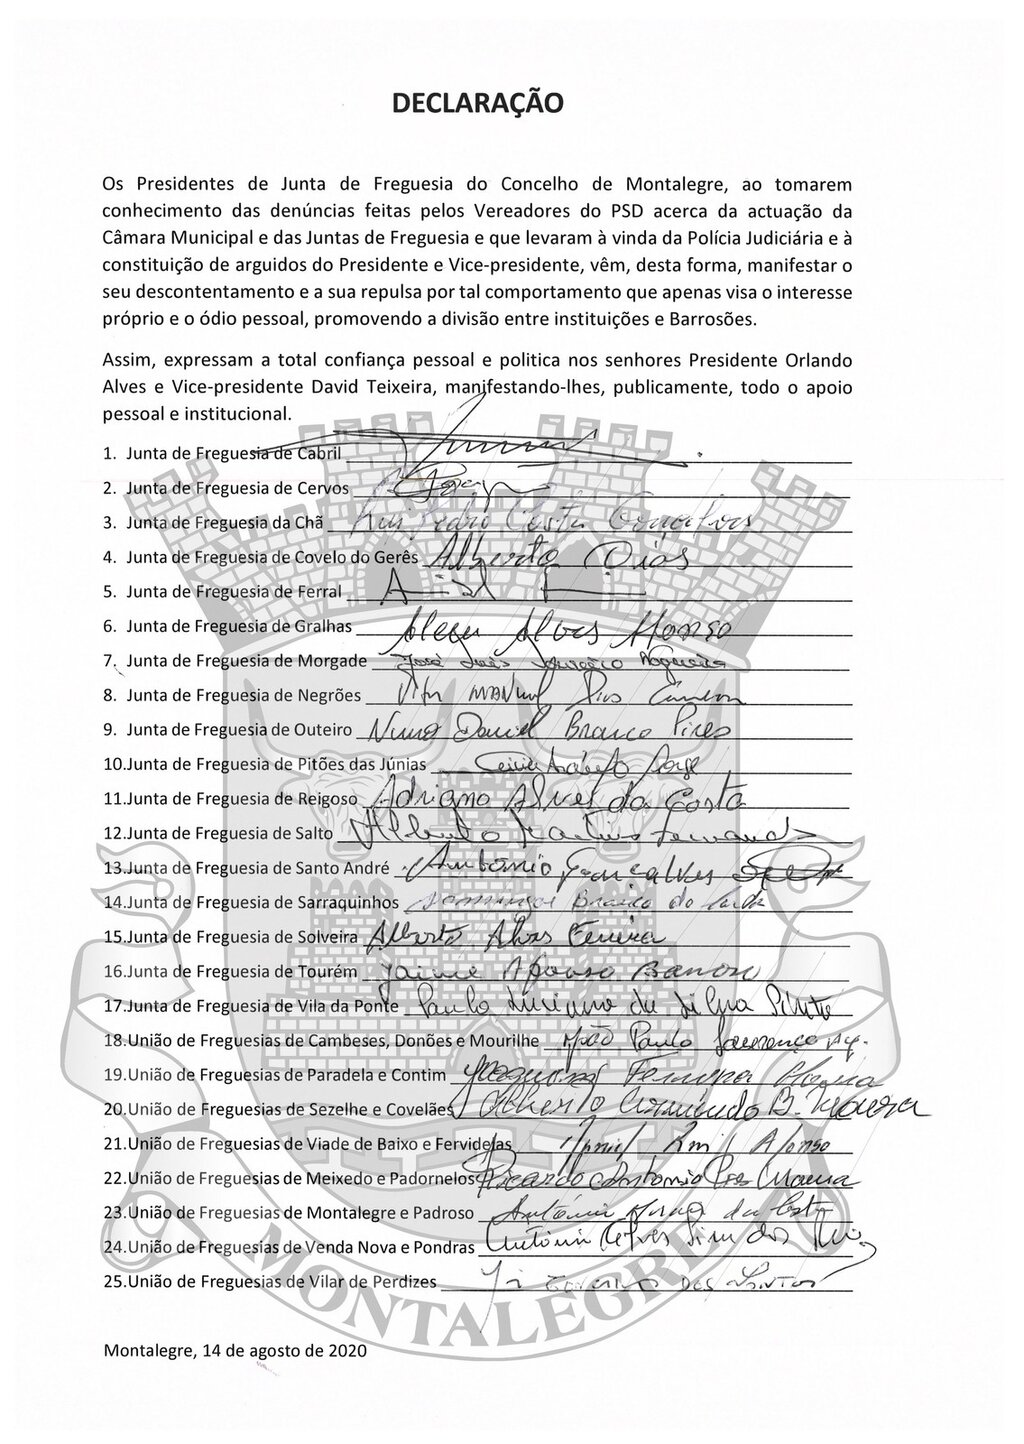 DECLARAÇÃO
Os Presidentes de Junta de Freguesia do Concelho de Montalegre, ao tomarem
conhecimento das denúncias feitas pelos Vereadores do PSD acerca da actuação da
Câmara Municipal e das Juntas de Freguesia e que levaram à vinda da Polícia Judiciária e à
constituição de arguidos do Presidente e Vice-presidente, vêm, desta forma, manifestar o
seu descontentamento e a sua repulsa por tal comportamento que apenas visa o interesse
próprio e o ódio pessoal, promovendo a divisão entre instituições e Barrosões.
Assim, expressam a total confiança pessoal e politica nos senhores Presidente Orlando
Alves e Vice-presidente David Teixeira, manifestando-lhes, publicamente, todo o apoio
pessoal e institucional.
1. Junta de Freguesia de Cabril
2. Junta de Freguesia de Cervos
3. Junta de Freguesia da Chã Rui Pedro Costa Gonçalves
4. Junta de Freguesia de Covelo do Gerês Alberto Dias
5. Junta de Freguesia de Ferral
6. Junta de Freguesia de Gralhas Alves Afonso
7. Junta de Freguesia de Morgade José Luís Nogueira
8. Junta de Freguesia de Negrões Vitor Manuel Dias
9. Junta de Freguesia de Outeiro Nuno Daniel Branco Pires
10.Junta de Freguesia de Pitões das Júnias Jorge
11.Junta de Freguesia de Reigoso Adriano Alves da Costa
12.Junta de Freguesia de Salto Alberto Martins Fernandes
13.Junta de Freguesia de Santo André António Gonçalves
14.Junta de Freguesia de Sarraquinhos Domingos Branco do
15.Junta de Freguesia de Solveira Alberto Alves Ferreira
16.Junta de Freguesia de Tourém Jaime Afonso Barroso
17.Junta de Freguesia de Vila da Ponte Paulo Luciano da Silva Pinto
18.União de Freguesias de Cambeses, Donões e Mourilhe João Paulo Lourenço
19.União de Freguesias de Paradela e Contim Ferreira
20.União de Freguesias de Sezelhe e Covelães Alberto Armindo B. Moura
21.União de Freguesias de Viade de Baixo e Fervidelas Afonso
22.União de Freguesias de Meixedo e Padornelos Ricardo António Pires Moura
23.União de Freguesias de Montalegre e Padroso António da Costa
24.União de Freguesias de Venda Nova e Pondras António Alves dos Reis
25.União de Freguesias de Vilar de Perdizes dos Santos
MONTALEGRE
Montalegre, 14 de agosto de 2020